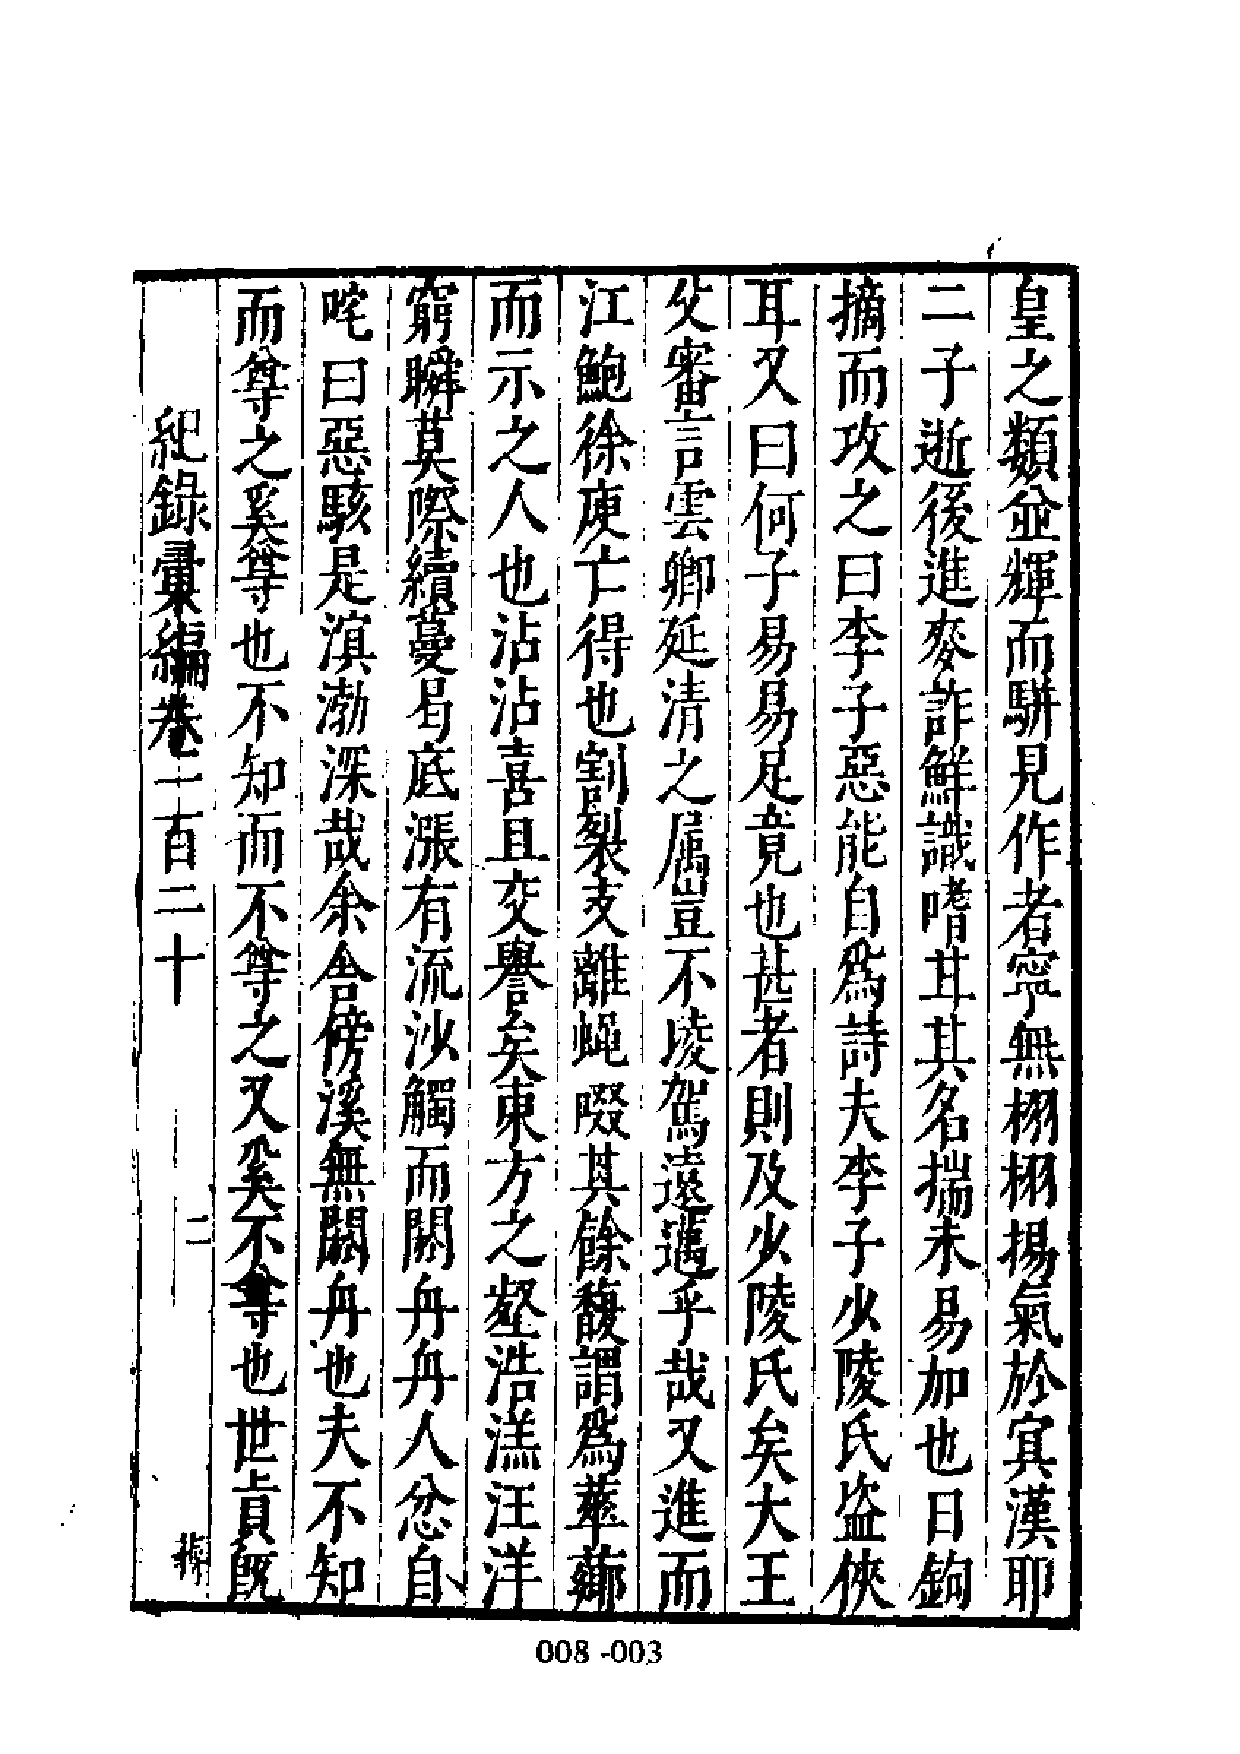 皇之類並輝而駢見作者寧無栩栩揚氣於寘漢耶
二子逝後進麥詐鮮識嗜其其名揣未易加也日鉤
摘而攻之曰李子惡能自爲詩夫李子少陵氏盜俠
耳又曰何子易易足竟也甚者則及少陵氏矣大王
父審言雲卿延清之属豈不陵駕遠邁乎哉又進而
江鮑徐庾亡得也割裂支離蝇啜其餘馥謂爲華薌
而示之人也沾沾喜且交譽矣東方之壑浩溔汪洋
窮瞬莫際續蔓曷底漲有流沙觸而閼舟舟人忿自
咤曰惡駭是滇渤深哉余舍傍溪無閼舟也夫不知
而尊之奚尊也不知而不尊之又奚不尊也世眞既
紀錄彙編卷一百二十
二
008 -003